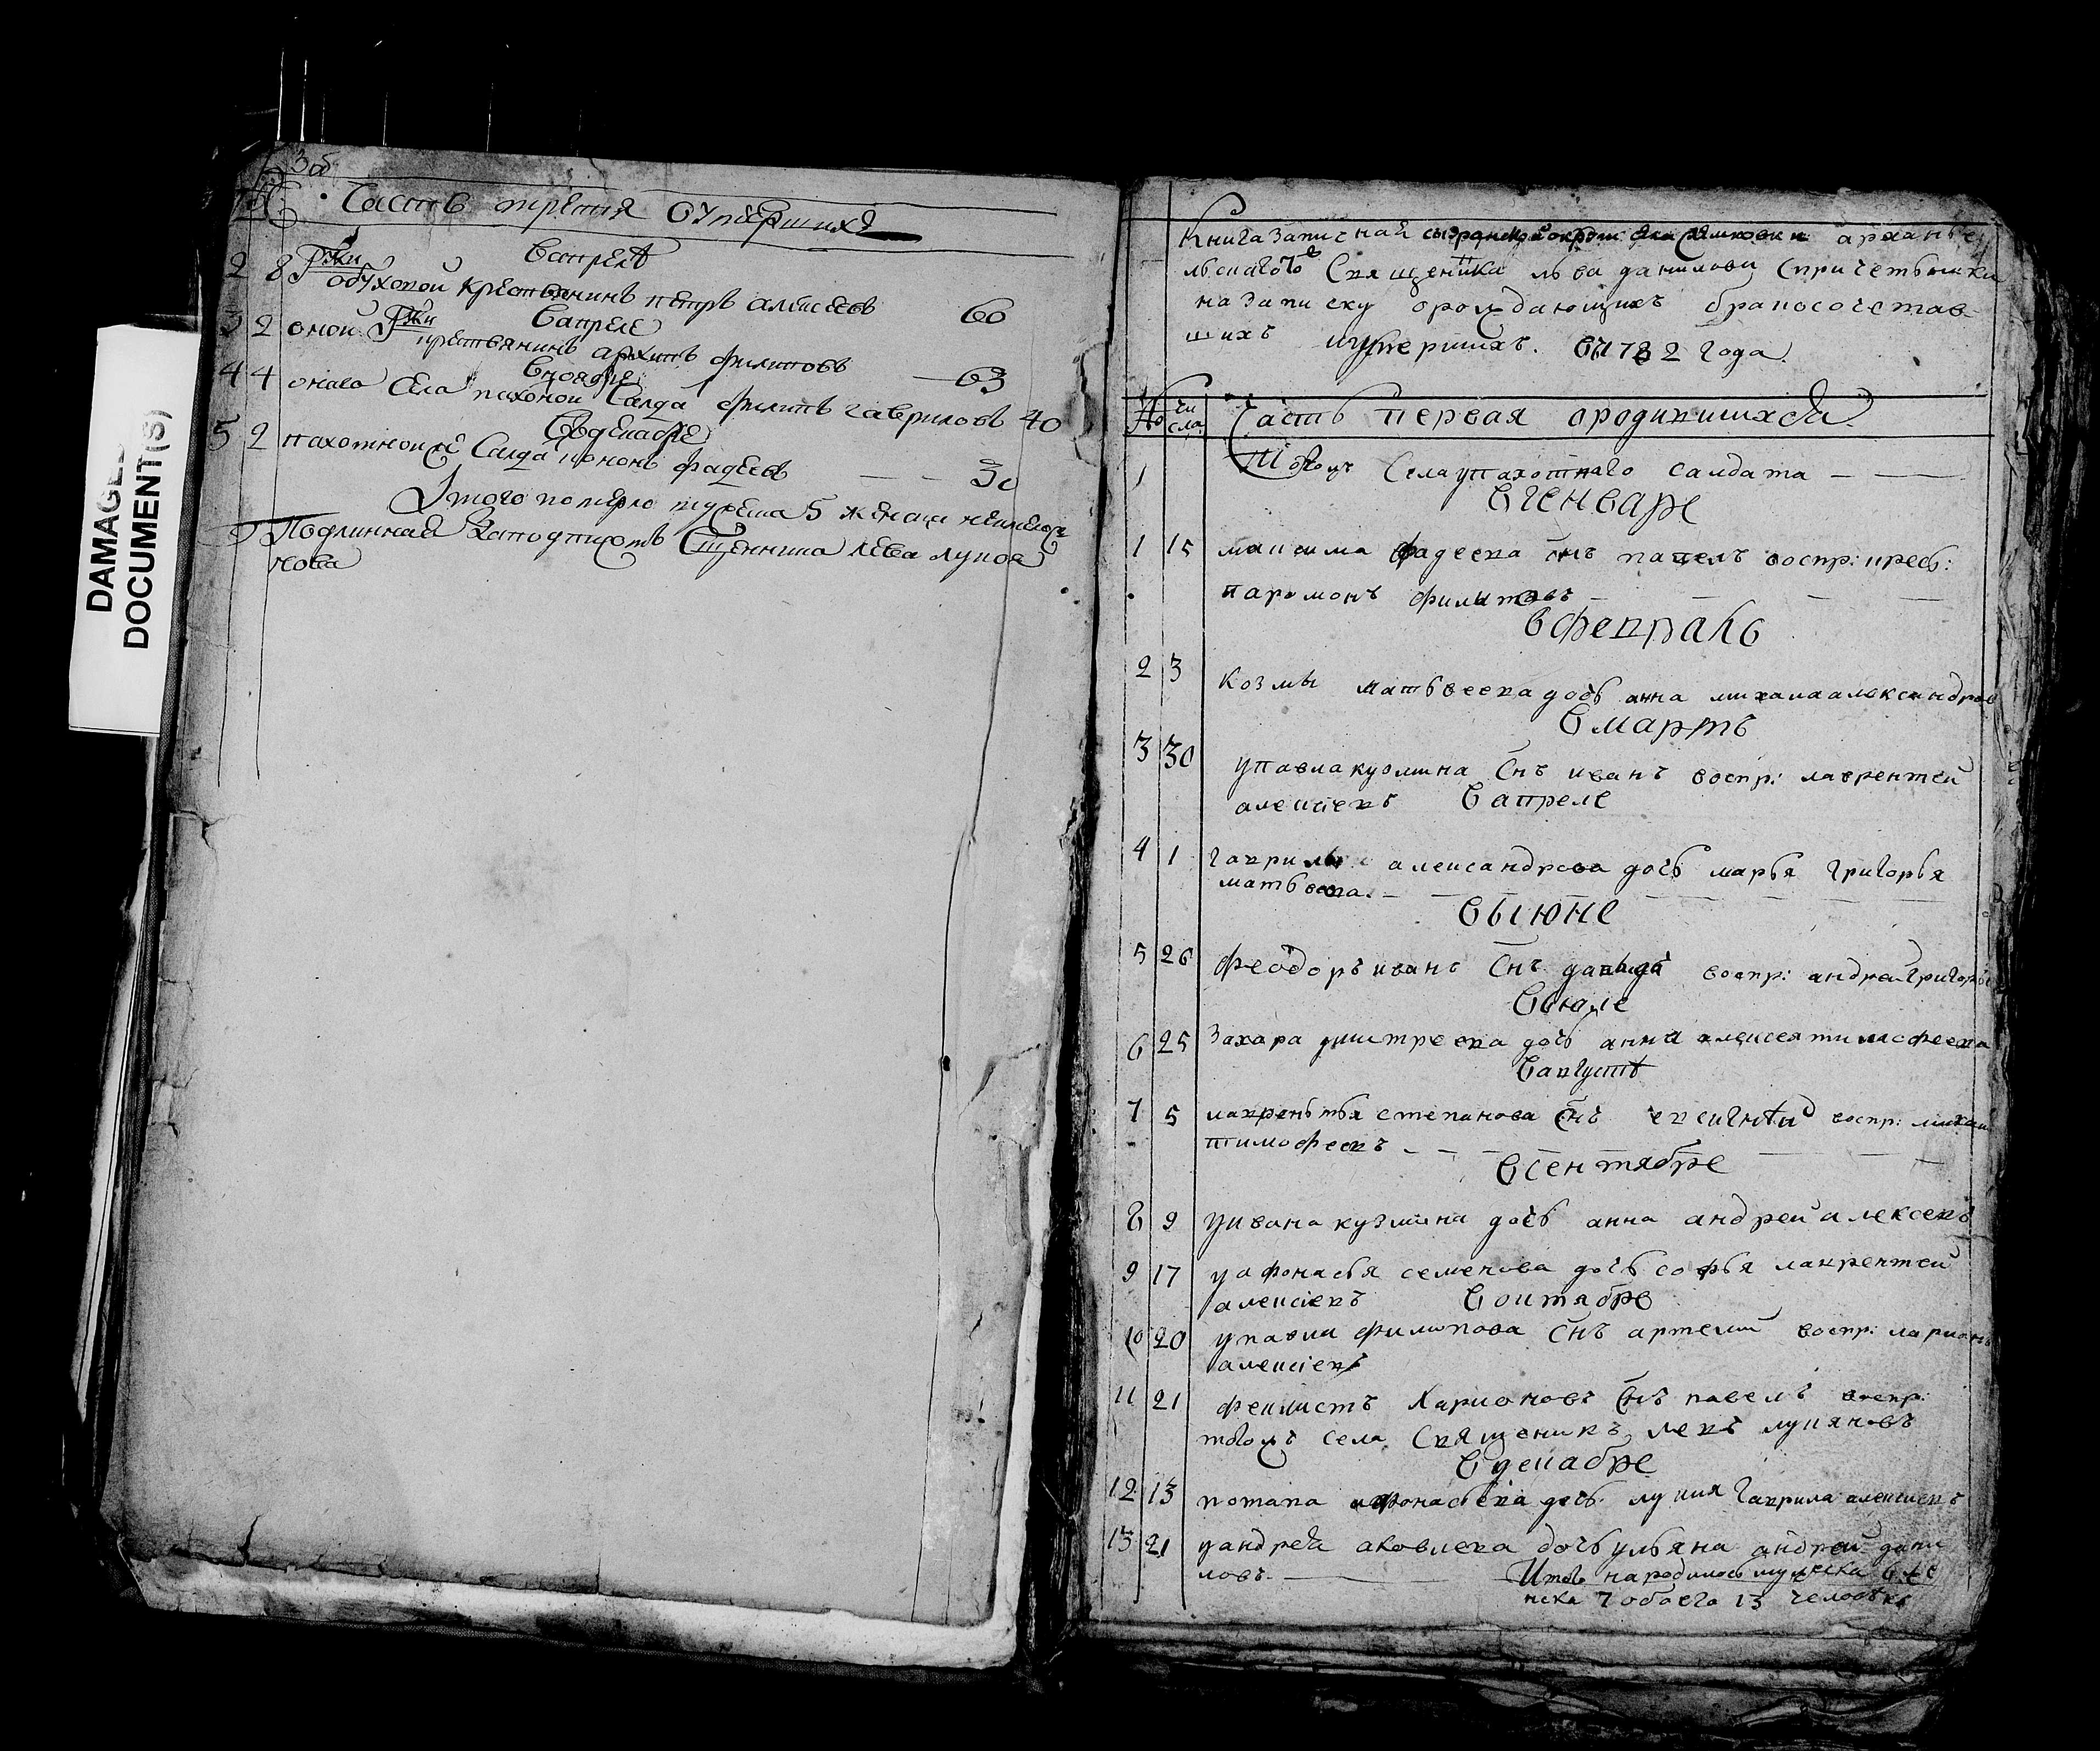 DAMAGED
DOCUMENT(S)
Часть третия оумершихъ
Вапреле
2 8 обуховой крестьянинъ петръ алексеевъ 60
Вапреле
3 2 оной крестьянинъ архипъ филиповъ 63
Вноябре
4 4 онаго села пахоной салда филипъ гавриловъ 40
Вдекабре
5 2 пахотной салда фадеевъ 30
Итого померло мужеска 5 женска
Подлинная Заподписомъ Сщенника лва лукоя
нова
Книга Записная архангел
льскаго Священника льва данилова Спричетники
на Записку орождающихъ бракосочетав
шихъ иумершихъ. В1782 года.
№ чи сла Часть первая ородившихся
1 тогожъ Села упахотнаго салдата
Вгенваре
1 15 максима фадеева снъ павелъ воспр: кресь:
парамонъ филиповъ
в февраль
2 3 козмы матвеева дочь анна михаила александров
В мартъ
3 30 упавла кузмина снъ иванъ воспр: лаврентей
алексiевъ В апреле
4 1 гаврилы александрова дочь марья григорья
матвеева.
Выюне
5 26 феодоръ иванъ снъ давыдъ воспр: андрей григорь
Выюле
6 25 Захара дмитреева дочь анна алексея тимосфеева
Вавгусте
7 5 лаврентья степанова снъ евсигней воспр: михаи
тимофеевъ
Всентябре
8 9 уивана кузмина дочь анна андрей алексеевъ
9 17 уафонасья семенова дочь софья лаврентей
алексiевъ Воктябре
10 20 упавла филипова снъ артемий воспр: ларионъ
алексiевъ
11 21 феклистъ Ларионовъ снъ павелъ воспр:
тогожъ села Священикъ левъ лукяновъ
Вдекабре
12 13 потапа афонасьева дочь лукия гаврила алексиевъ
13 21 уандрея аковлева дочь ульяна андрей дани
ловъ. Итого народилось мужеска 6 же
нска 7 обоего 13 человекъ